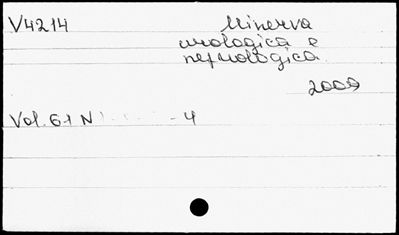 V4214
Minerva
urologica e
nefrologica.
2009
Vol. 61 N 1 - 4